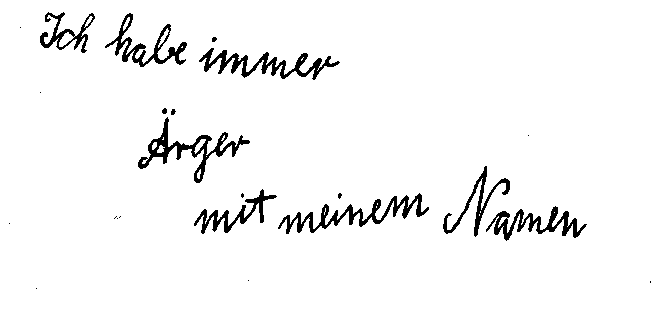 Ich habe immer
Ärger
mit meinem Namen